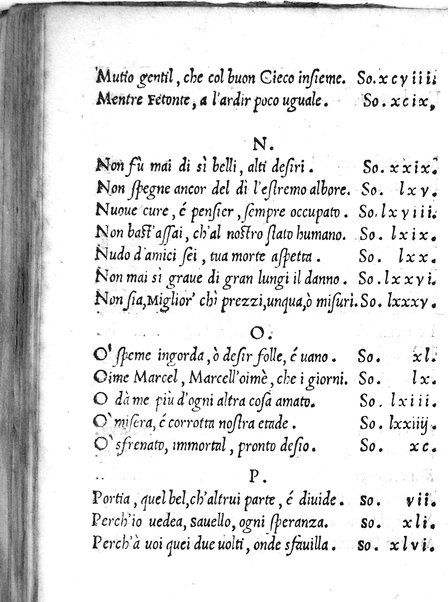 Mutio gentil, che col buon Cieco insieme. So. xcviii.
Mentre Fetonte, a l'ardir poco uguale. So. xcix.
N.
Non fù mai di sì belli, alti desiri. So. xxix.
Non spegne ancor del dì l'estremo albore. So. lxv.
Nuove cure, é pensier, sempre occupato. So. lxviii.
Non bast'assai, ch'al nostro stato humano. So. lxix.
Nudo d'amici sei, tua morte aspetta. So. lxx.
Non mai sì graue di gran lungi il danno. So. lxxvi.
Non sia, Miglior' chi prezzi, unqua, ò misuri. So. lxxxv.
O.
O' speme ingorda, ò desir folle, é uano. So. xl.
Oime Marcel, Marcell'oimè, che i giorni. So. lx.
O dà me più d'ogni altra cosa amato. So. lxiii.
O' misera, é corrotta nostra etade. So. lxxiiij.
O' sfrenato, immortal, pronto desio. So. xc.
P.
Portia, quel bel, ch'altrui parte, é diuide. so. vii.
Perch'io uedea, sauello, ogni speranza. so. xli.
Perch'à uoi quei due uolti, onde sfauilla. so. xlvi.